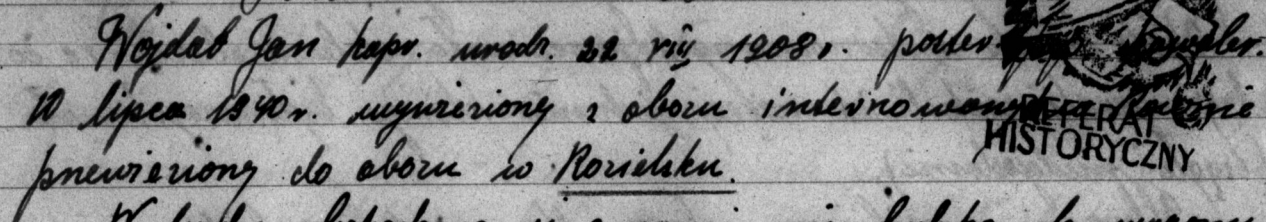 Wojdat Jan kapr. urodz. 22 VIII 1908r.
10 lipca 1940r. wywieziony z obozu internowanych
przewieziony do obozu w Kozielsku.
REFERAT
HISTORYCZNY